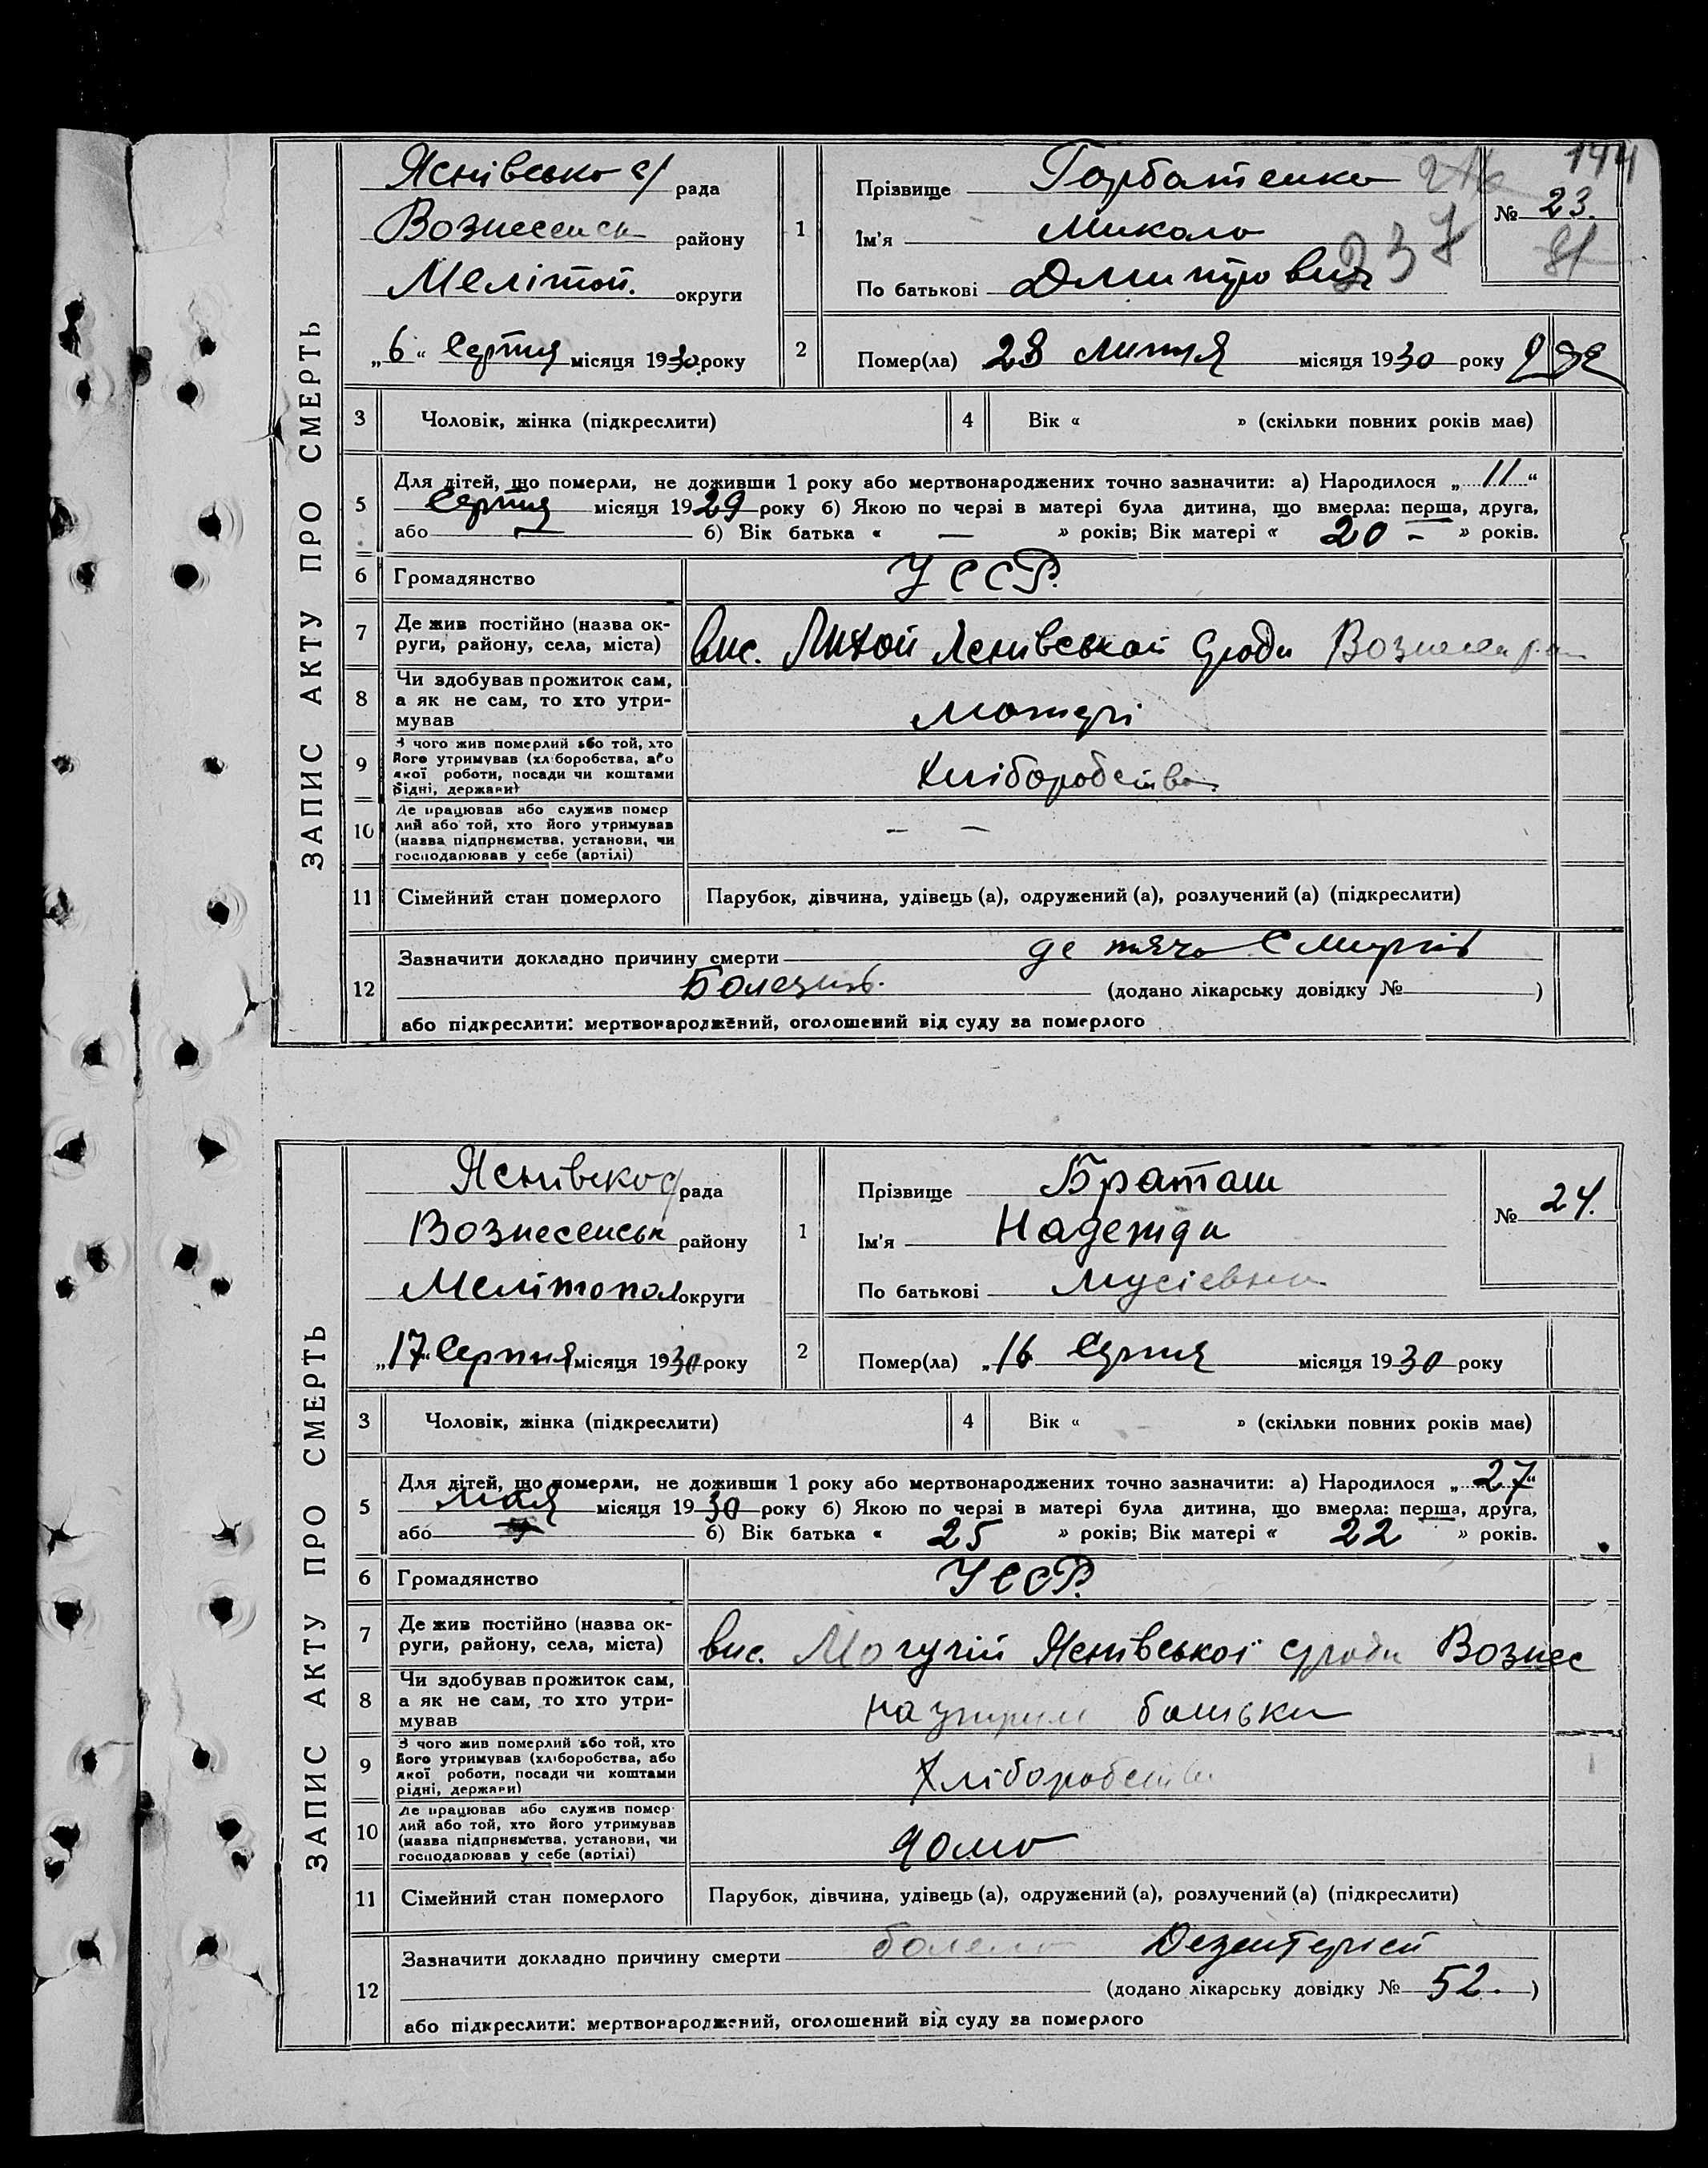 144
ЗАПИС АКТУ ПРО СМЕРТЬ
Яснівсько с/ рада
Вознесенськ району
Мелітоп. округи
„6“ Серпня місяця 1930 року
1
Прізвище Горбатенко
Ім'я Микола
По батькові Дмитрович
237
№ 23.
2
Помер(ла) 28 липня місяця 1930 року
3 Чоловік, жінка (підкреслити)
4 Вік « » (скільки повних років має)
5 Для дітей, що померли, не доживши 1 року або мертвонароджених точно зазначити: а) Народилося „11“
Серпня місяця 1929 року б) Якою по черзі в матері була дитина, що вмерла: перша, друга,
або — б) Вік батька « — » років; Вік матері « 20 - » років.
6 Громадянство УССР.
7 Де жив постійно (назва ок-
руги, району, села, міста) вис. Яснівської Сради Вознесен р-
8 Чи здобував прожиток сам,
а як не сам, то хто утри-
мував матері
9 З чого жив померлий або той, хто
його утримував (хліборобства, або
якої роботи, посади чи коштами
рідні, держави) Хліборобства
10 Де працював або служив помер
лий або той, хто його утримував
(назва підприємства, установи, чи
господарював у себе (артілі) — —
11 Сімейний стан померлого Парубок, дівчина, удівець (а), одружений (а), розлучений (а) (підкреслити)
12 Зазначити докладно причину смерти детяча
Болезнь. (додано лікарську довідку № )
або підкреслити: мертвонароджений, оголошений від суду за померлого
ЗАПИС АКТУ ПРО СМЕРТЬ
Яснівско с/ рада
Вознесенськ району
Мелітопол округи
„17“ Серпня місяця 1930 року
1
Прізвище Браташ
Ім'я Надежда
По батькові Мусієвна
№ 24.
2
Помер(ла) „16 Серпня місяця 1930 року
3 Чоловік, жінка (підкреслити)
4 Вік « - » (скільки повних років має)
5 Для дітей, що померли, не доживши 1 року або мертвонароджених точно зазначити: а) Народилося „27“
мая місяця 1930 року б) Якою по черзі в матері була дитина, що вмерла: перша, друга,
або б) Вік батька « 25 » років; Вік матері « 22 » років.
6 Громадянство УССР.
7 Де жив постійно (назва ок-
руги, району, села, міста) вис. Могучій Яснівської сради Вознес
8 Чи здобував прожиток сам,
а як не сам, то хто утри-
мував на утрим батьки
9 З чого жив померлий або той, хто
його утримував (хліборобства, або
якої роботи, посади чи коштами
рідні, держави) Хліборобства
10 Де працював або служив помер-
лий або той, хто його утримував
(назва підприємства, установи, чи
господарював у себе (артілі) дома
11 Сімейний стан померлого Парубок, дівчина, удівець (а), одружений (а), розлучений (а) (підкреслити)
12 Зазначити докладно причину смерти болела Дезентерієй
(додано лікарську довідку № 52. )
або підкреслити: мертвонароджений, оголошений від суду за померлого